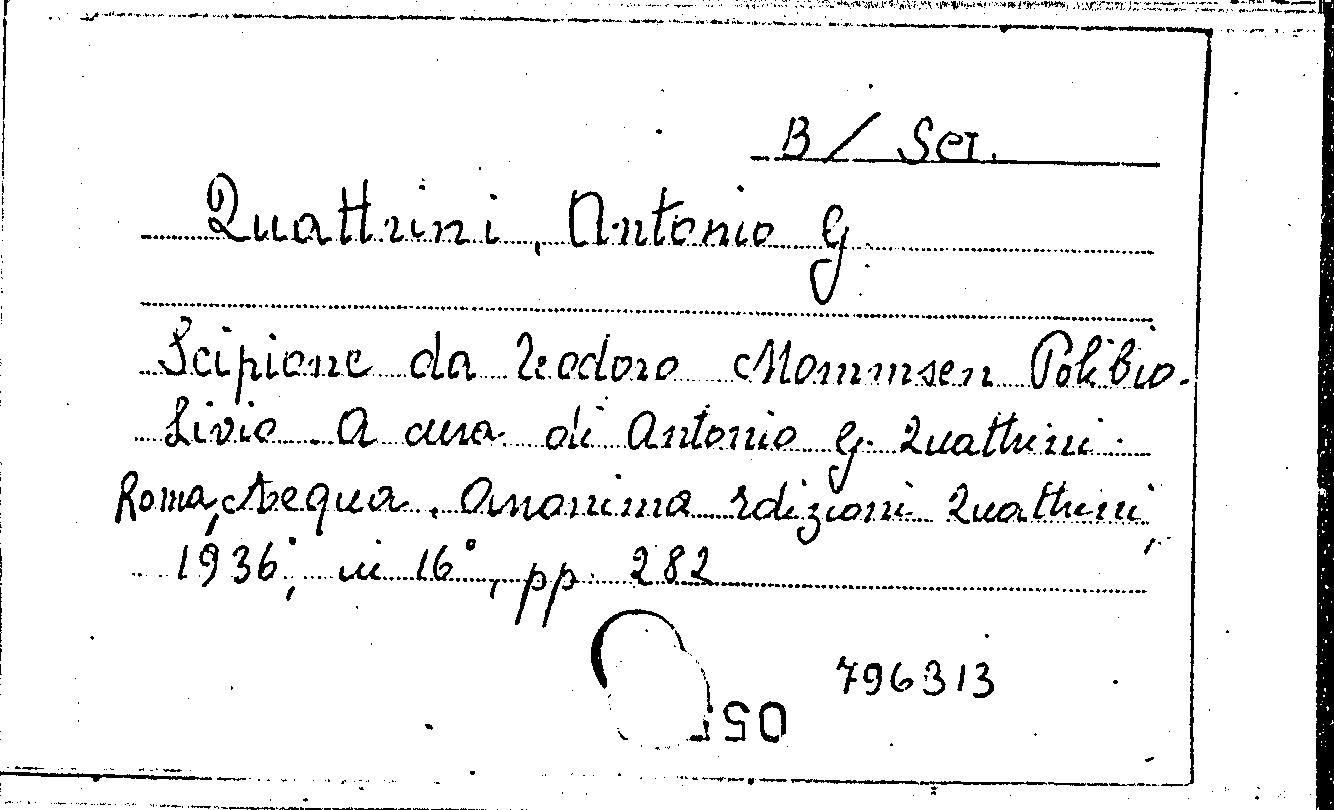 B / Sci.
Quattrini, Antonio G.
Scipione da Teodoro Mommsen Polibio.
Livio. A cura di Antonio G. Quattrini.
Roma, Aequa. Anonima Edizioni Quattrini,
1936, in 16°, pp. 282
796313